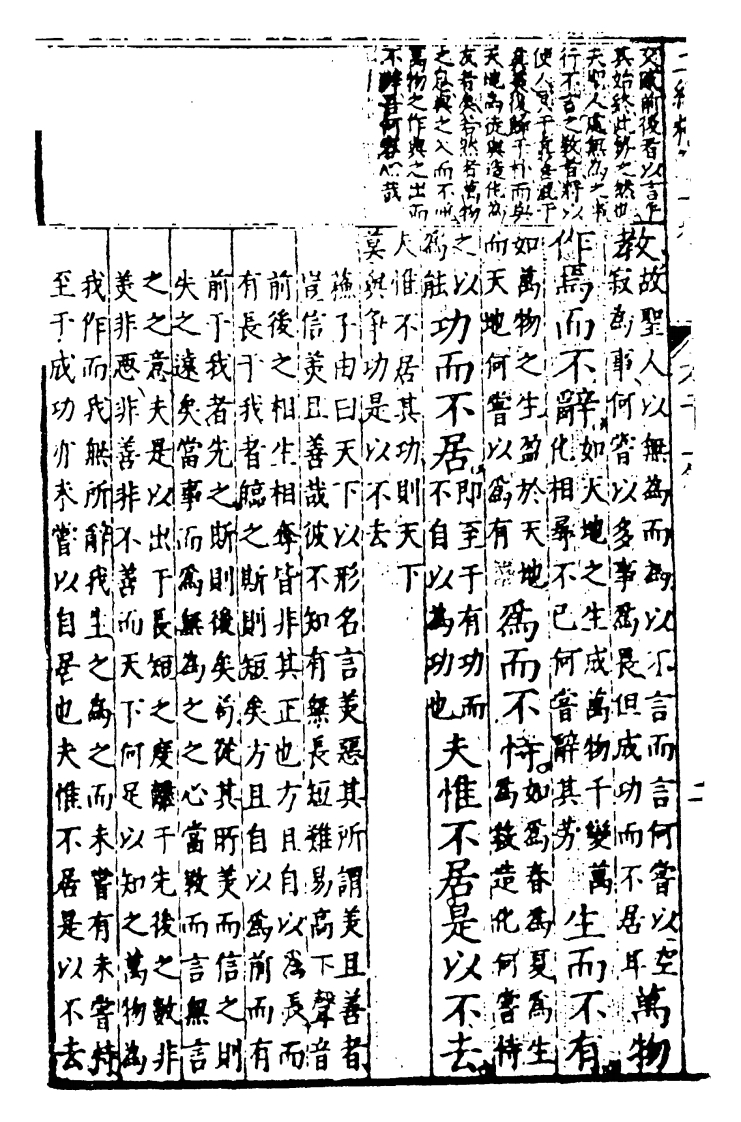 交感前後者以言乎
其始終此數之然也
夫聖人處無為之事
行不言之教者將以
復歸于朴而與
天地為徒與造化為
友者矣若然者萬物
之息與之入而不逆
萬物之作與之出而
不辭吾何容心哉
教故聖人以無為而為以不言而言何嘗以空
寂為事何嘗以多事為畏但成功而不居耳萬物
作焉而不辭如天地之生成萬物千變萬
化相尋不已何嘗辭其勞生而不有
如萬物之生盈於天地
而天地何嘗以為有為而不恃如為春為夏為生
為殺造化何嘗恃
之以
為能功而不居即至于有功而
不自以為功也夫惟不居是以不去
夫惟不居其功則天下
莫與爭功是以不去
蘇子由曰天下以形名言美惡其所謂美且善者
豈信美且善哉彼不知有無長短難易高下聲音
前後之相生相奪皆非其正也方且自以為長而
有長于我者臨之斯則短矣方且自以為前而有
前于我者先之斯則後矣苟從其所美而信之則
失之遠矣當事而為無為之之心當教而言無言
之之意夫是以出于長短之度離于先後之數非
美非惡非善非不善而天下何足以知之萬物為
我作而我無所辭我生之為之而未嘗有未嘗恃
至于成功亦未嘗以自居也夫惟不居是以不去